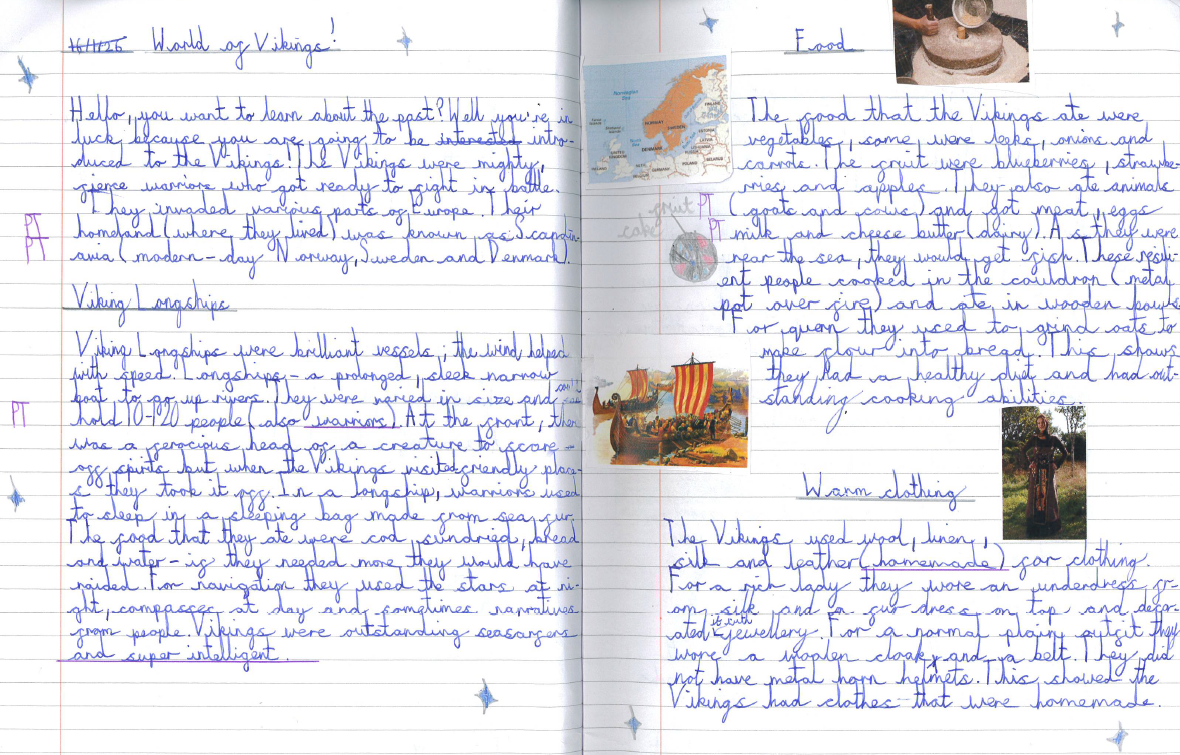 16/1/26 World of Vikings!
Hello, you want to learn about the past? Well you're in
luck because you are going to be interested intro-
duced to the Vikings! The Vikings were mighty,
fierce warriors who got ready to fight in battle.
They invaded various parts of Europe. Their
PT
homeland (where they lived) was known as Scandin-
PT
avia (modern-day Norway, Sweden and Denmark).
Viking Longships
Viking Longships were brilliant vessels, the wind helped
with speed. Longships - a prolonged, sleek narrow
boat to go up rivers. They were varied in size and
PT
hold 10-120 people (also warriors). At the front, there
was a ferocious head of a creature to scare-
off spirits but when the Vikings visited friendly place-
s they took it off. In a longship, warriors used
to sleep in a sleeping bag made from sea fur.
The food that they ate were cod, sundried, bread
and water - if they needed more they would have
raided. For navigation they used the stars at ni-
ght, compasses at day and somgtimes narratives
from people. Vikings were outstanding seafarers
and super intelligent.
Food
The food that the Vikings ate were
vegetables, some were leeks, onions and
carrots. The fruit were blueberries, strawbe-
rries and apples. They also ate animals
(goats and cows) and got meat, eggs
PT
milk and cheese butter (dairy). As they were
PT
near the sea, they would get fish. These resili-
ent people cooked in the couldron (metal
pot over fire) and ate in wooden bowls
For quern they used to grind oats to
make flour into bread. This shows
they had a healthy diet and had out-
standing cooking abilities.
fruit
cake
Norwegian
Sea
NORWAY
SWEDEN
FINLAND
ESTONIA
LATVIA
DENMARK
UNITED
KINGDOM
IRELAND
POLAND
BELARUS
GERMANY
Warm clothing
The Vikings used wool, linen,
silk and leather (homemade) for clothing.
For a rich lady they wore an underdress fr-
om silk and a fur dress on top and decor-
ated it with jewellery. For a normal plain outfit they
wore a woolen cloak, and a belt. They did
not have metal horn helmets. This showed the
Vikings had clothes that were homemade.